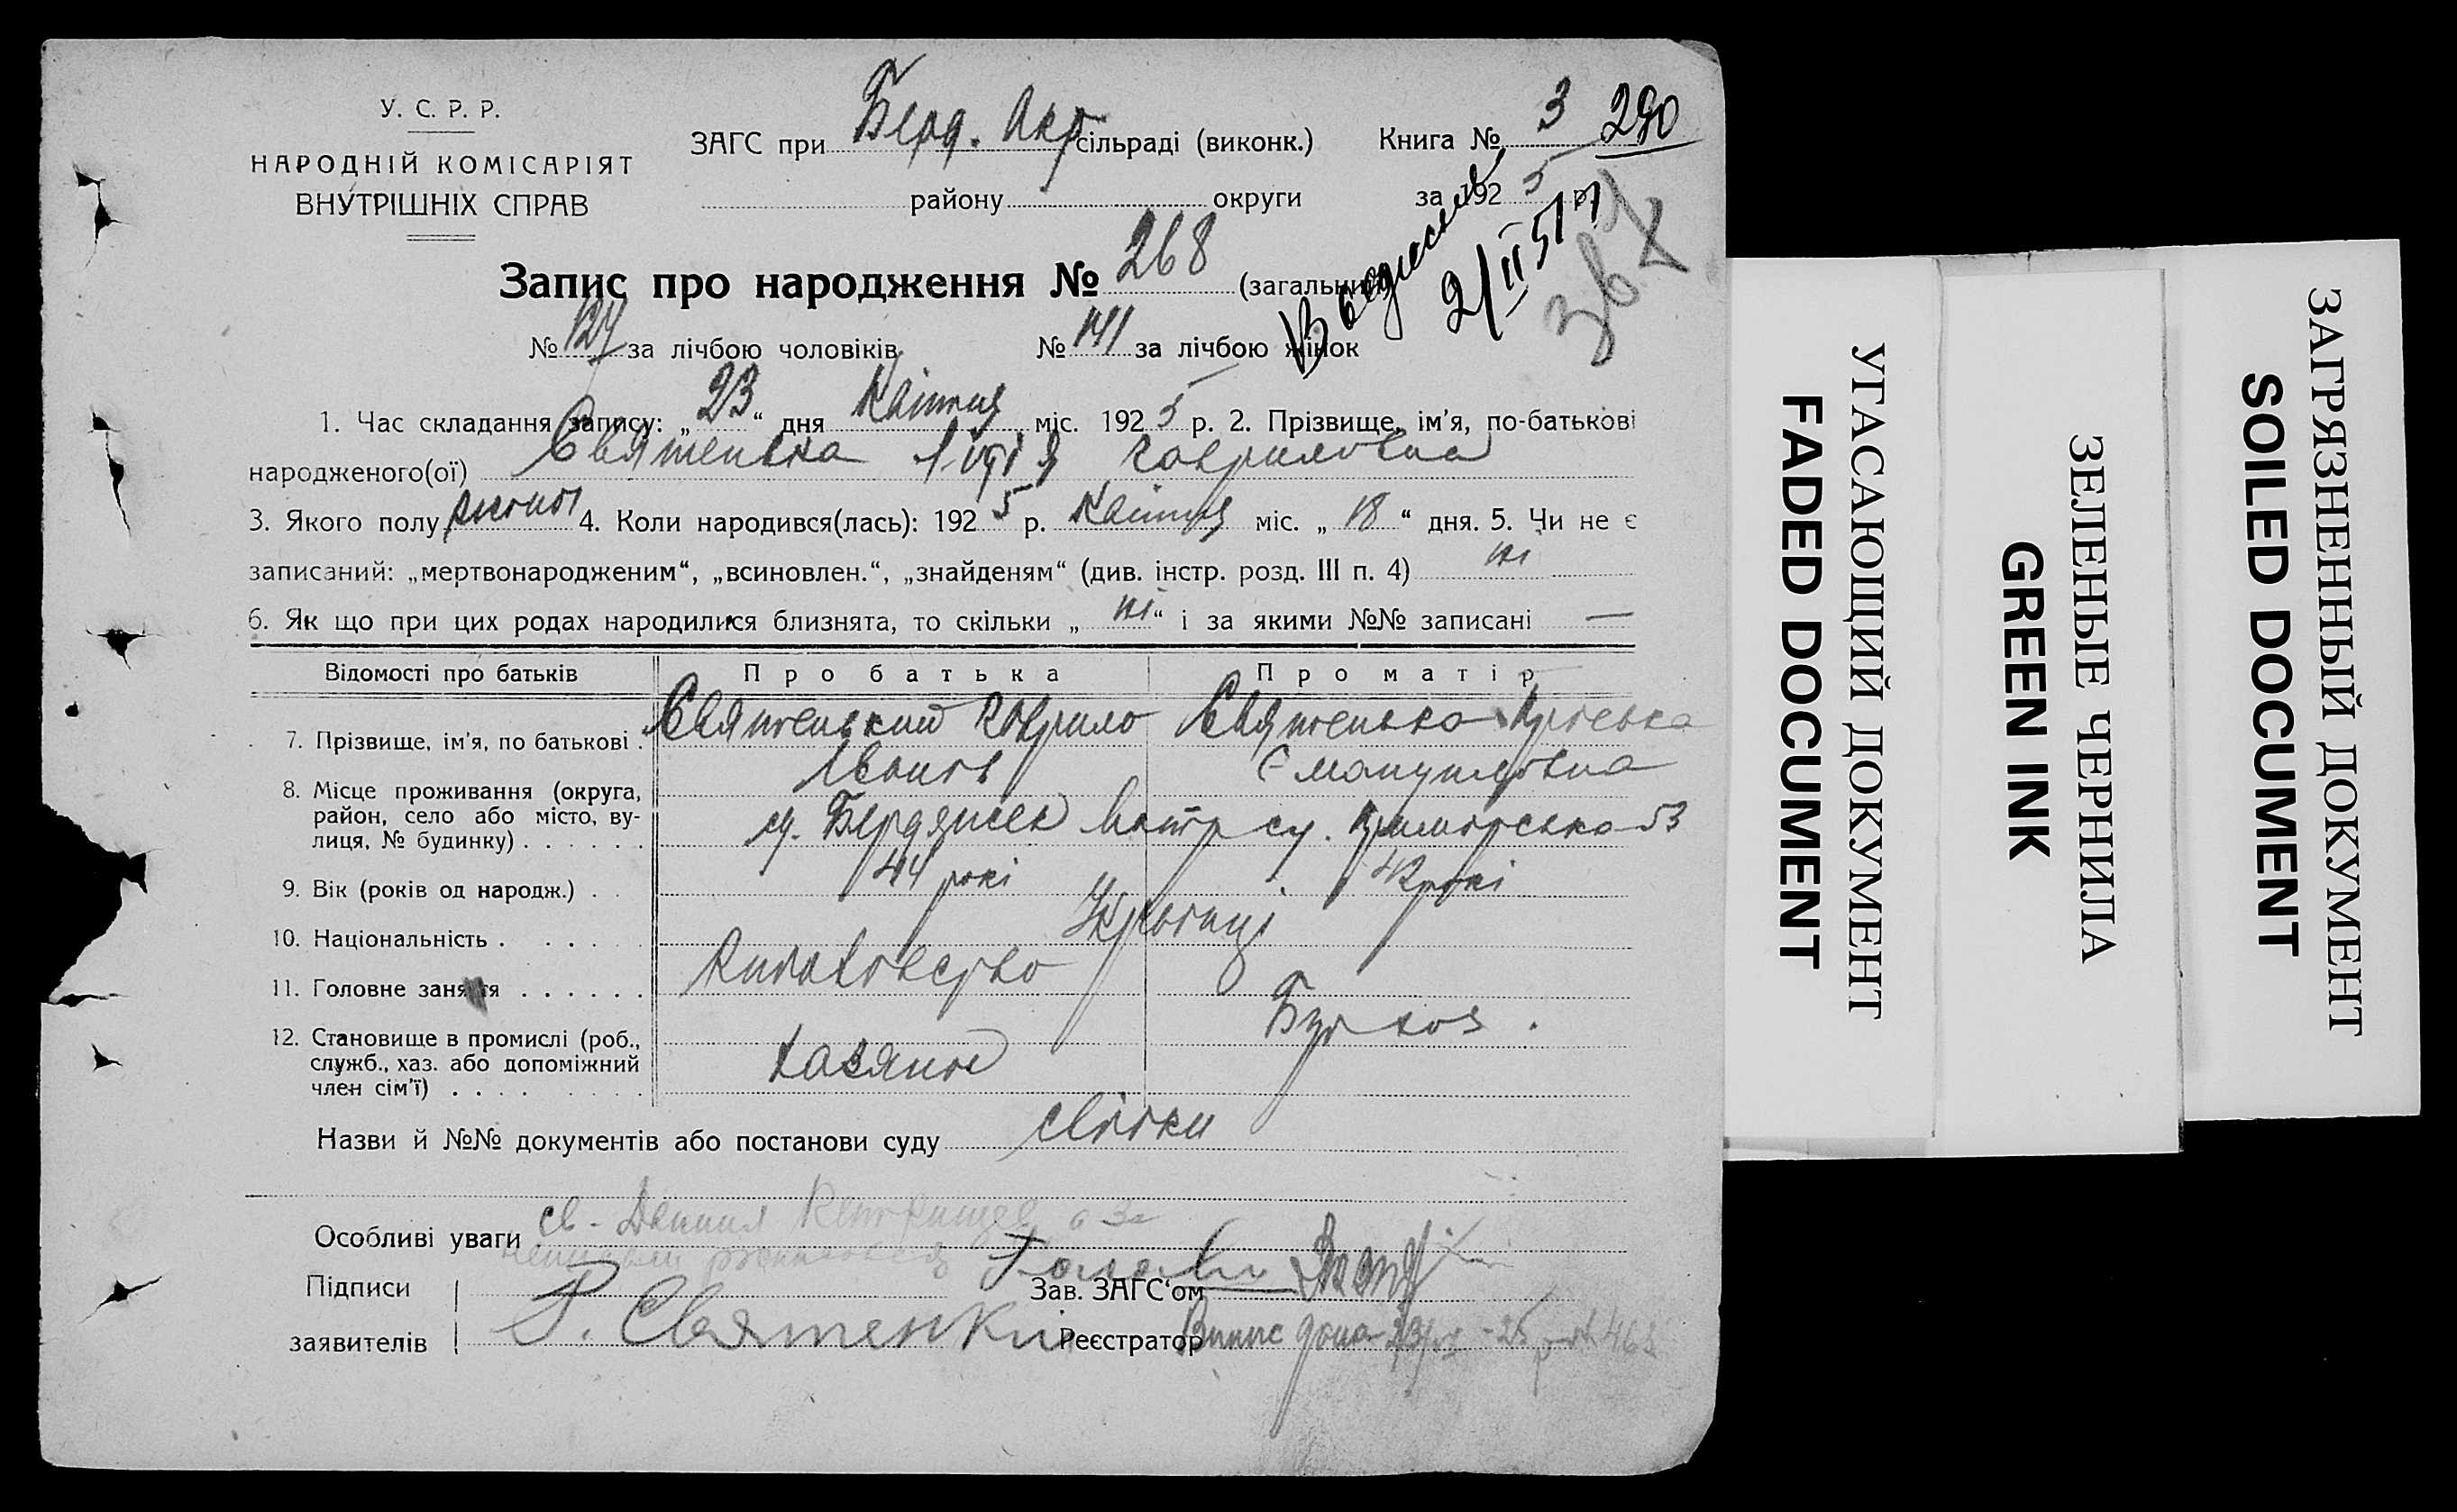 У. С. Р. Р.
НАРОДНІЙ КОМІСАРІЯТ
ВНУТРІШНІХ СПРАВ
ЗАГС при Берд. Окр сільраді (виконк.)
Книга № 3 290
району округи за 192 5 р.
2/II 51
Запис про народження № 268 (загальний)
№ 127 за лічбою чоловіків № 141 за лічбою жінок
1. Час складання запису: „ 23 “ дня Квітня міс. 192 5 р. 2. Прізвище, ім'я, по-батькові
народженого(ої) Святенька Лідія Гавриловна
3. Якого полу жіночі 4. Коли народився(лась): 192 5 р. Квітня міс. „ 18 “ дня. 5. Чи не є
записаний: „мертвонародженим“, „всиновлен.“, „знайденям“ (див. інстр. розд. III п. 4) ні
6. Як що при цих родах народилися близнята, то скільки „ ні “ і за якими №№ записані —
Відомості про батьків Про батька Про матір
7. Прізвище, ім'я, по батькові . Святенький Гаврило Святенька
Іванов
8. Місце проживання (округа,
район, село або місто, ву-
лиця, № будинку) . . . . . . м. Бердянськ Приморська 53
9. Вік (років од народж.) . . 44 рокі 42 рокі
10. Національність . . . . . . Українці
11. Головне заняття . . . . . .
12. Становище в промислі (роб.,
служб., хаз. або допоміжний
член сім'ї) . . . . Хазяин
Назви й №№ документів або постанови суду свідки
Особливі уваги св-
Підписи
заявителів Г. Святенкий
Зав. ЗАГС‘ом
Реєстратор Випис дана
УГАСАЮЩИЙ ДОКУМЕНТ
FADED DOCUMENT
ЗЕЛЕНЫЕ ЧЕРНИЛА
GREEN INK
ЗАГРЯЗНЕННЫЙ ДОКУМЕНТ
SOILED DOCUMENT